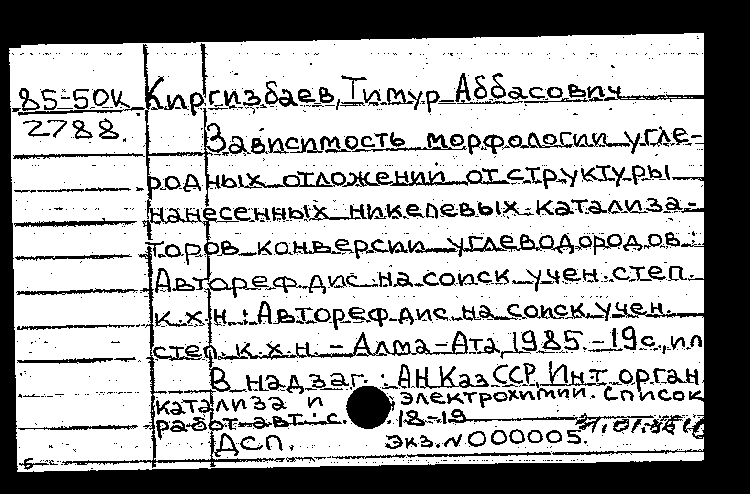 85-50к Киргизбаев, Тимур Аббасович
2788. Зависимость морфологии угле-
родных отложений от структуры
нанесенных никелевых катализа-
торов конверсии углеводородов :
Автореф дис на соиск учен. степ.
к.х.н : Автореф дис на соиск учен.
степ. к.х.н. - Алма-Ата, 1985. - 19с, ил
В надзаг. : АН КазССР, Инт орган
катализа и электрохимии. Список
работ авт : с. 18-19
ДСП. Экз. N 000005. 31.01.86
5